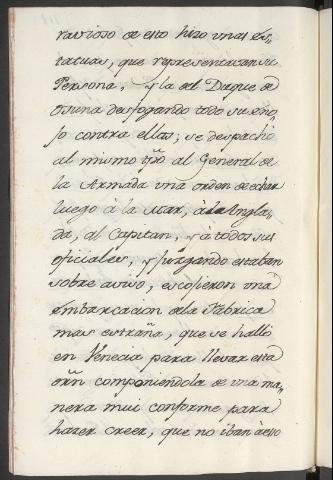 ravioso de esto hizo unas es-
tatuas, que representavan su
Persona, y la del Duque de
Osuna desfogando todo su eno-
jo contra ellas; se despachò
al mismo tpõ al General de
la Armada vna orden de echar
luego à la Mar, à la Ingla-
da, al Capitan, y à todos sus
oficiales, y juzgando estaban
sobre aviso, escojieron vna
embarcacion de la Fabrica
mas estraña, que se hallò
en Venecia para llevar esta
orñ componiendola de vna ma-
nera mui conforme para
hazer creer, que no iban à esso